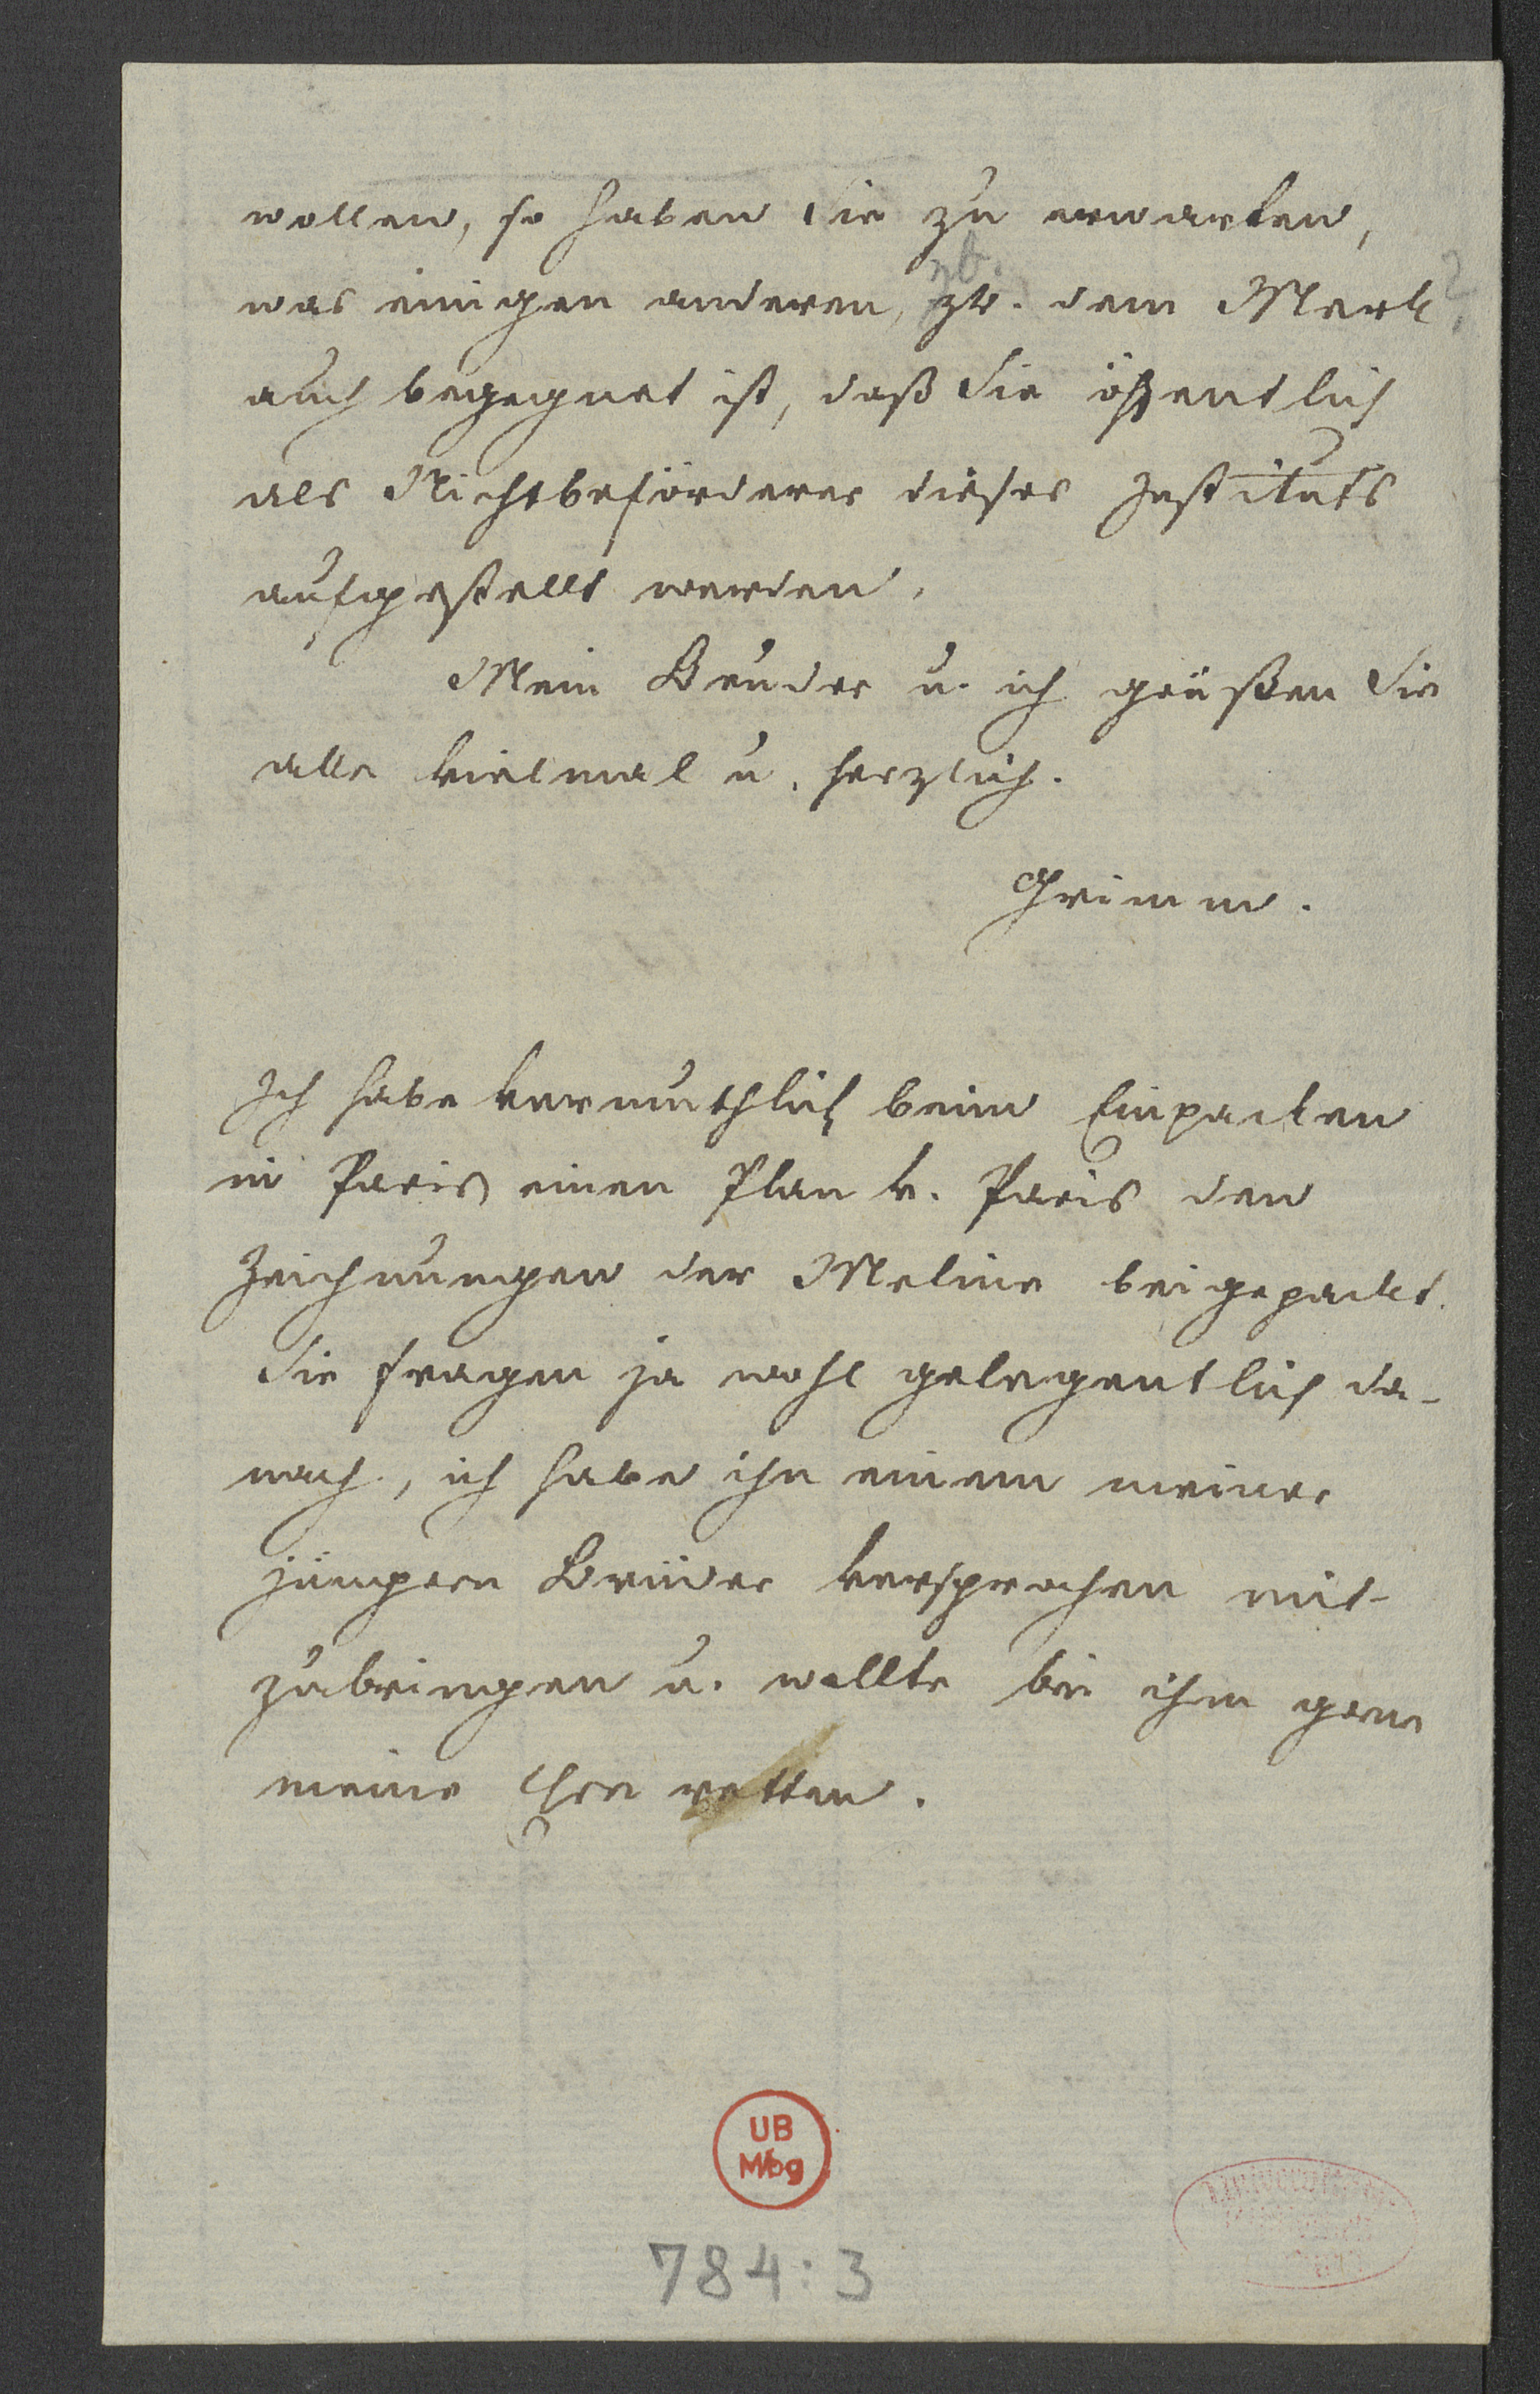 wollen, so haben Sie zu erwarten,
zb.
was einigen anderen, zb. dem Merk ?
auch begegnet ist, daß Sie öffentlich
als Nichtbeförderer dieses Instituts
aufgestellt werden.
Mein Bruder u. ich grüßen Sie
alle vielmal u. herzlich.
Grimm.
Ich habe vermuthlich beim Einpacken
in Paris einen Plan v. Paris den
Zeichnungen der Meline beigepackt.
Sie fragen ja wohl gelegentlich da-
nach, ich habe ihn einem meiner
jüngern Brüder versprochen mit-
zubringen u. wollte bei ihm gern
meine Ehre retten.
UB
Mbg
784:3